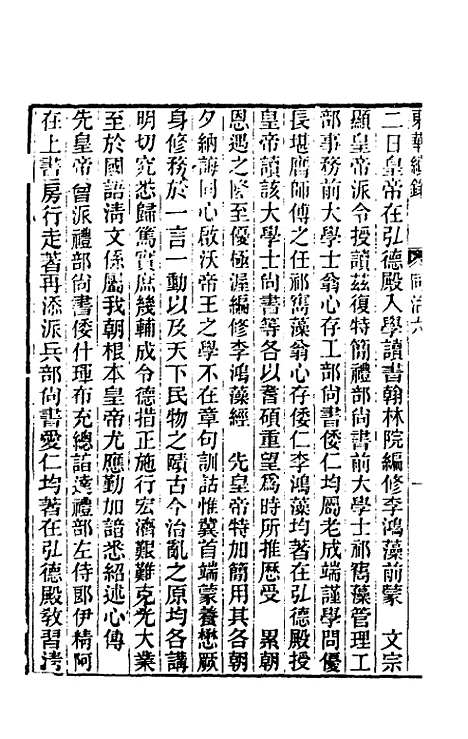 東華續錄 同治六 一
二日皇帝在弘德殿入學讀書翰林院編修李鴻藻前蒙 文宗
顯皇帝派令授讀茲復特簡禮部尚書前大學士祁寯藻管理工
部事務前大學士翁心存工部尚書倭仁均屬老成端謹學問優
長堪膺師傅之任祁寯藻翁心存倭仁李鴻藻均著在弘德殿授
皇帝讀該大學士尚書等各以耆碩重望爲時所推歷受 累朝
恩遇之隆至優極渥編修李鴻藻經 先皇帝特加簡用其各朝
夕納誨同心啟沃帝王之學不在章句訓詁惟冀首端蒙養懋厥
身修務於一言一動以及天下民物之賾古今治亂之原均各講
明切究悉歸篤實庶幾輔成令德措正施行宏濟艱難克光大業
至於國語清文係屬我朝根本皇帝尤應勤加諳悉紹述心傳
先皇帝曾派禮部尚書倭什琿布充總諳達禮部左侍郎伊精阿
在上書房行走著再添派兵部尚書愛仁均著在弘德殿教習清